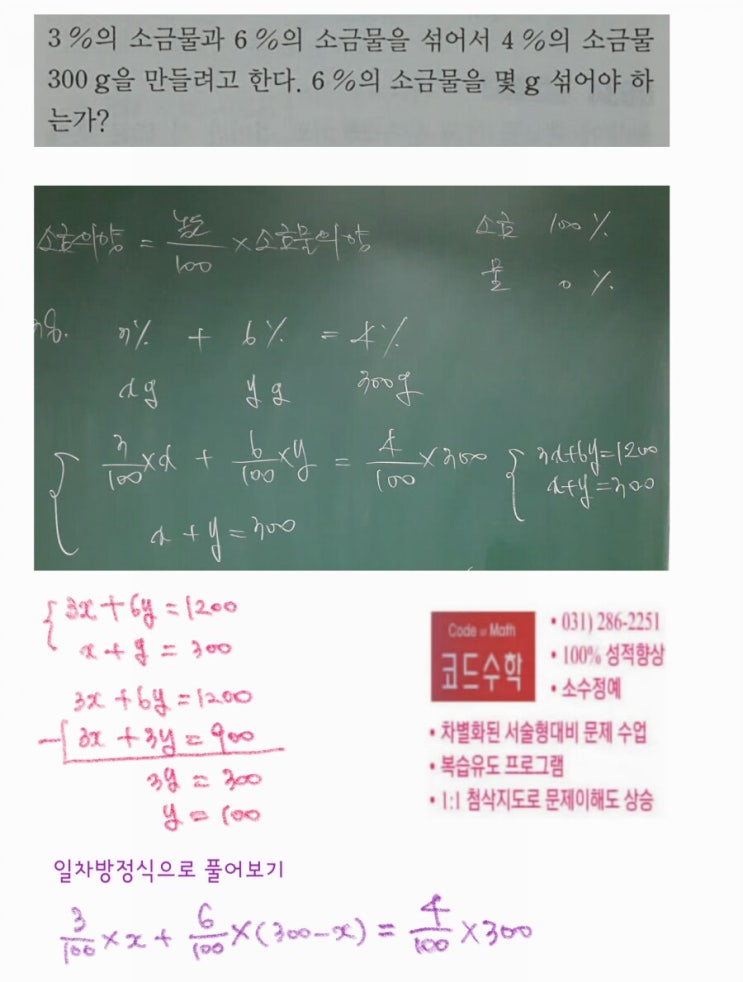 3 %의 소금물과 6 %의 소금물을 섞어서 4 %의 소금물
300 g을 만들려고 한다. 6 %의 소금물을 몇 g 섞어야 하
는가?
소금의양 = 농도/100 × 소금물의양
소금 100 %
물 0 %
3% + 6% = 4%
x g y g 300g
3/100 × x + 6/100 × y = 4/100 × 300
x + y = 300
3x+6y=1200
x+y=300
3x + 6y = 1200
x + y = 300
3x + 6y = 1200
- 3x + 3y = 900
3y = 300
y = 100
Code in Math
코드수학
• 031) 286-2251
• 100% 성적향상
• 소수정예
• 차별화된 서술형대비 문제 수업
• 복습유도 프로그램
• 1:1 첨삭지도로 문제이해도 상승
일차방정식으로 풀어보기
3/100 × x + 6/100 × (300-x) = 4/100 × 300